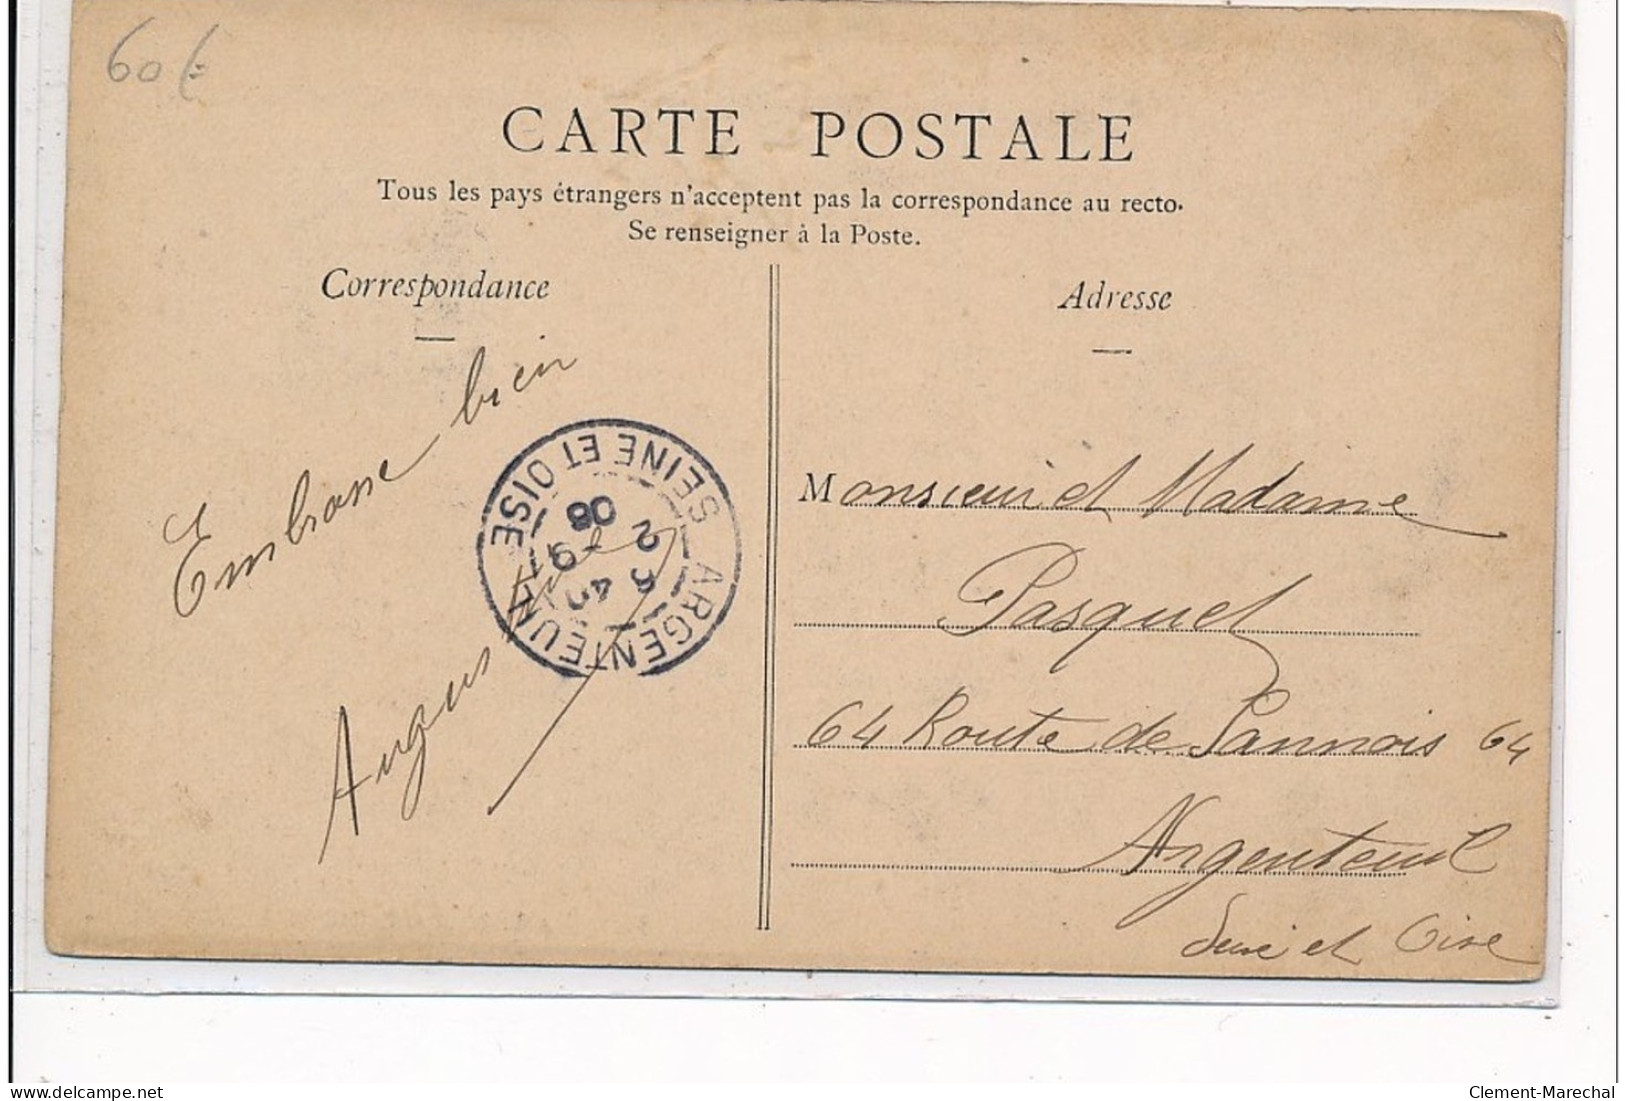 60 €
CARTE POSTALE
Tous les pays étrangers n'acceptent pas la correspondance au recto.
Se renseigner à la Poste.
Correspondance
Embrasse bien
ARGENTEUIL
SEINE ET OISE
2 -9
08
Adresse
Monsieur et Madame
Pasquet
64 Route de Sannois 64
Argenteuil
Seine et Oise
Clement-Marechal